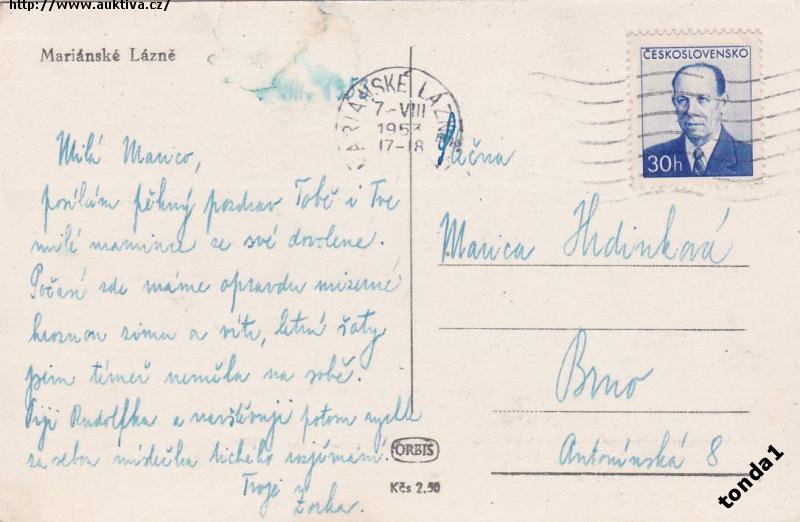 http://www.auktiva.cz/
Mariánské Lázně
MARIÁNSKÉ LÁZNĚ
7-VIII
1953
17-18
ČESKOSLOVENSKO
30h
Milá Marico,
posílám pěkný pozdrav Tobě i Tvé
milé mamince ze své dovolené.
Počasí zde máme opravdu mizerné
hroznou zimu a vítr, letní šaty
jsem téměř neměla na sobě.
Piji Rudolfka a navštěvuji potom rychle
za sebou místečka tichého rozjímání.
Tvoje
Zorka.
ORBIS
Kčs 2.50
Slečna
Marica Hrdinková
Brno
Antonínská 8
tonda1